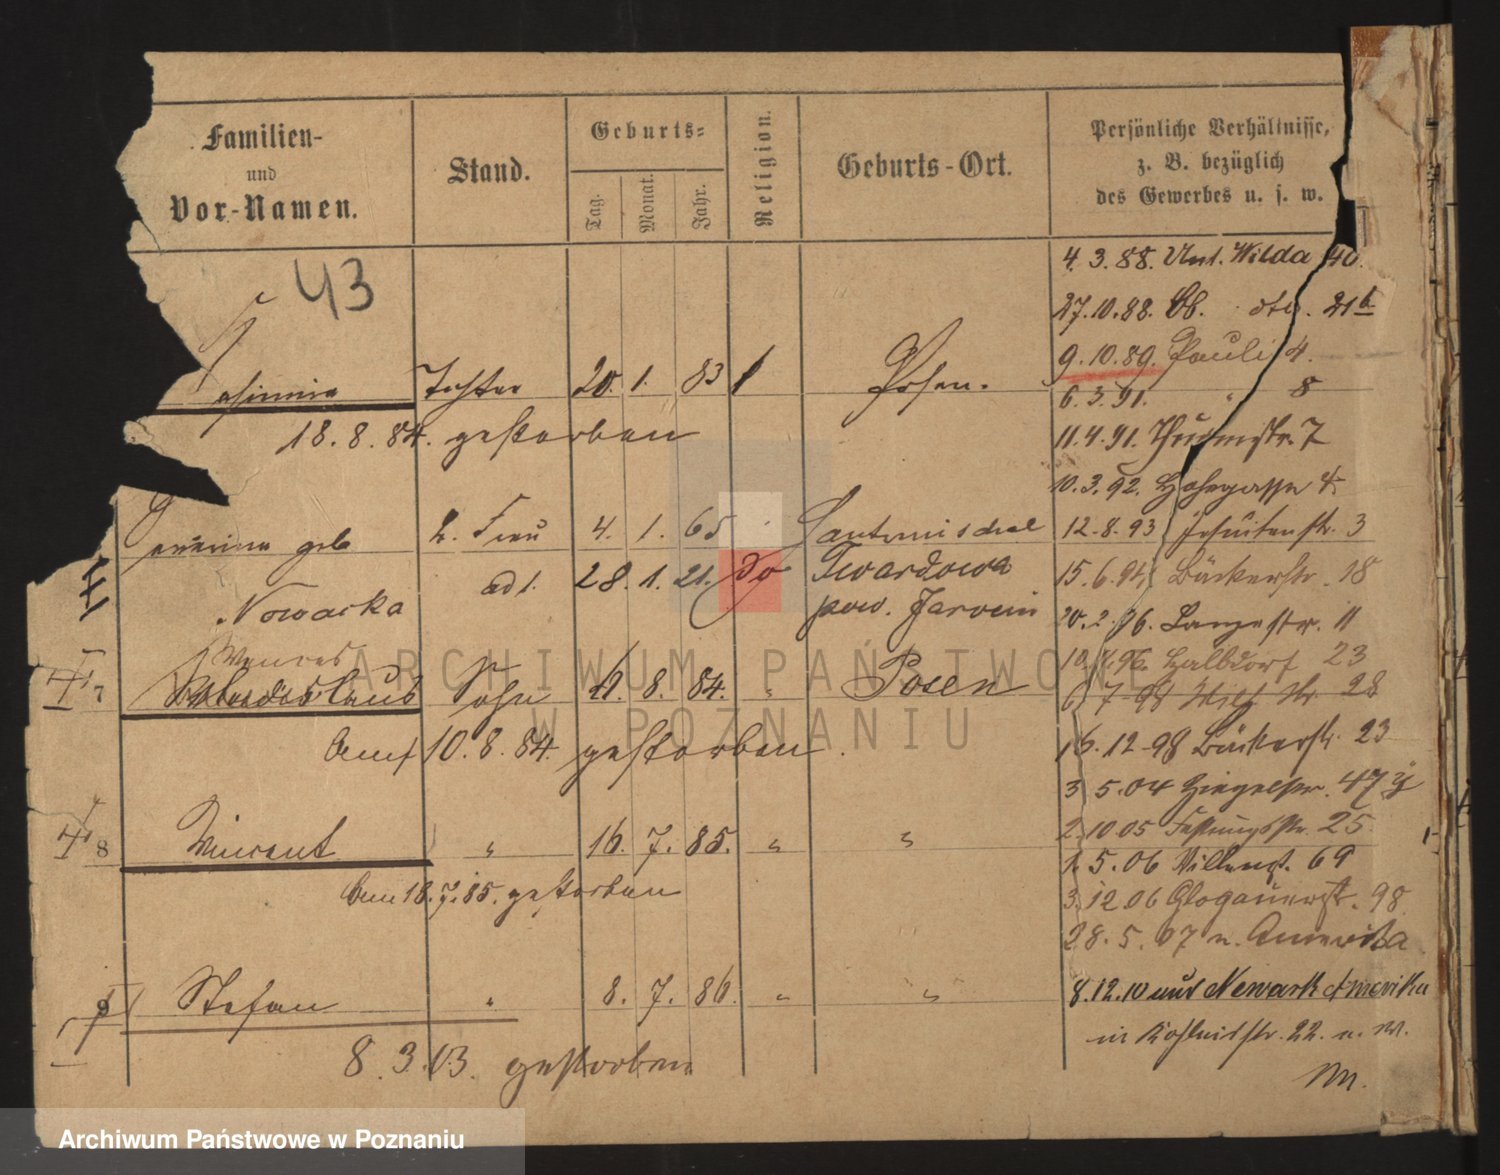 Familien-
und
Vor-Namen.
Stand.
Geburts-
Tag.
Monat.
Jahr.
Religion.
Geburts-Ort.
Persönliche Verhältnisse,
z. B. bezüglich
des Gewerbes u. s. w.
43
4. 3. 88. Unt. Wilda 40.
27. 10. 88. Ob. dto. 21b
9. 10. 89. Pauli 4.
Tochter 20. 1. 83 Posen.
6. 3. 91. " 8
18. 8. 84. gestorben
11. 4. 91. Thurmstr. 7
10. 3. 92. Hohegasse 4
geb 2. Frau 4. 1. 65 Santomischel
12. 8. 93 Jesuitenstr. 3
adt. 28. 1. 21. Twardowa
15. 6. 94 Bäckerstr. 18
Nowacka pow. Jarocin
20. 2. 96. Langestr. 11
10. 96. Halbdorf 23
7 Sohn 8. 84. " Posen
6 7-98 28
Am 10. 8. 84. gestorben.
16. 12-98 Bäckerstr. 23
3. 5. 04 Ziegelstr. 47
8 Vincent " 16. 7. 85. " "
2. 10 05 Festungsstr. 25
1. 5. 06 Villengt. 69
Am 18. 7. 85. gestorben
3. 12 06 Glogauerstr. 98
28. 5. 07 n. Amerika
9 Stefan " 8. 7. 86. " "
8. 12. 10 aus Newark Amerika
in 22. n. W.
8. 3. 03. gestorben
ARCHIWUM PAŃSTWOWE
W POZNANIU
Archiwum Państwowe w Poznaniu